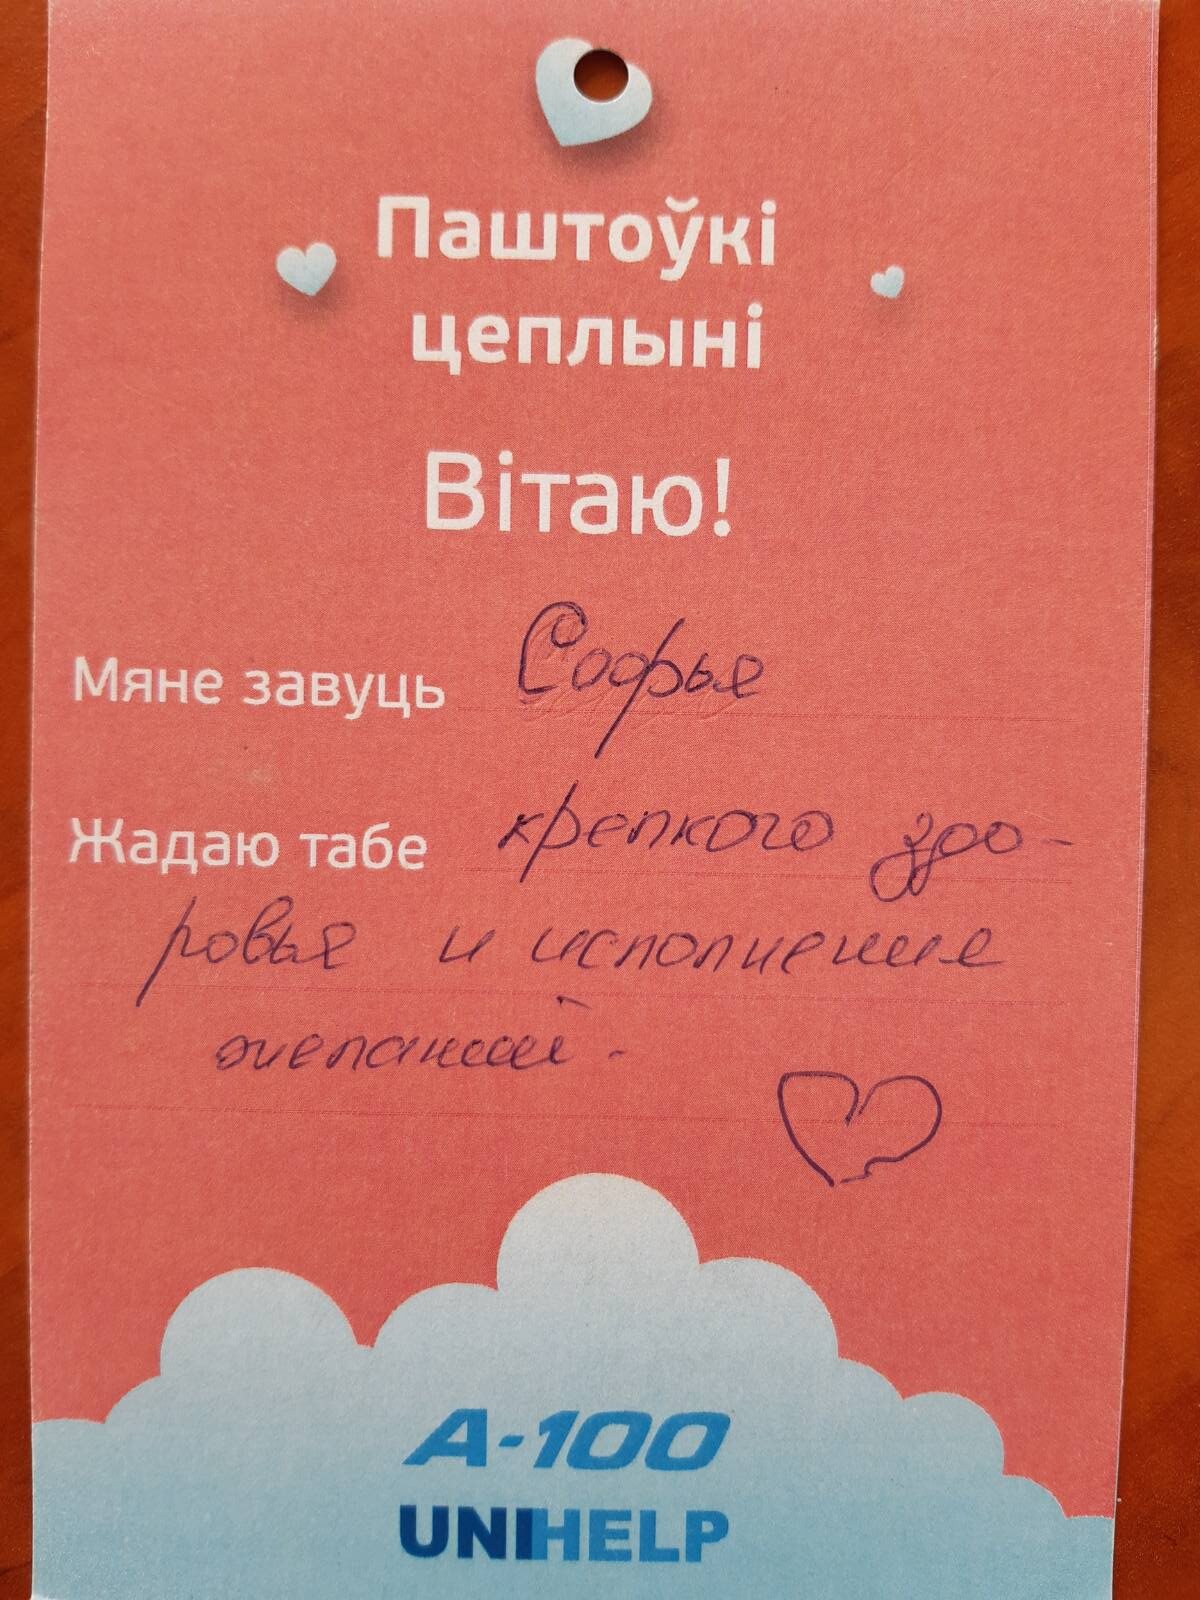 Паштоўкі
цеплыні
Вітаю!
Мяне завуць Софья
Жадаю табе крепкого здо-
ровья и исполнения
желаний.
A-100
UNIHELP